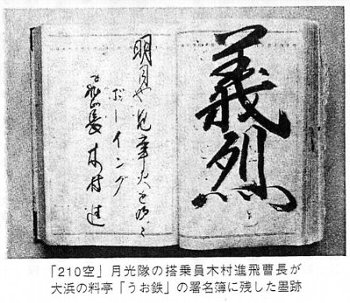 義烈
明月や
ボーイング
飛曹長
木村進
「210空」月光隊の搭乗員木村進飛曹長が
大浜の料亭「うお鉄」の署名簿に残した墨跡